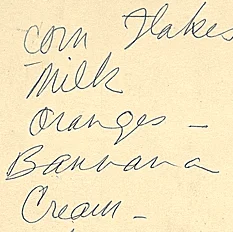 Corn Flakes
Milk
Oranges -
Bannana
Cream -